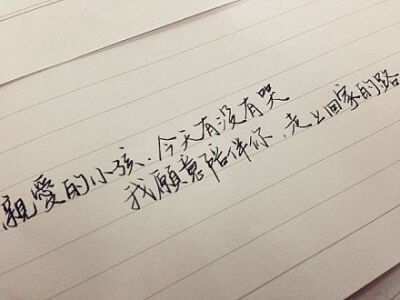 親愛的小孩,今天有没有哭
我願意陪伴你,走上回家的路